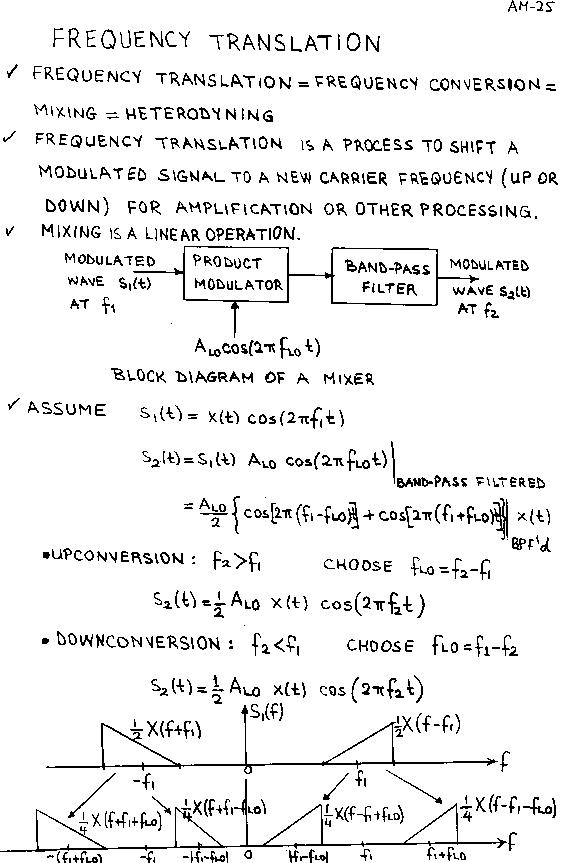 AM-25
FREQUENCY TRANSLATION
✓ FREQUENCY TRANSLATION = FREQUENCY CONVERSION =
MIXING = HETERODYNING
✓ FREQUENCY TRANSLATION IS A PROCESS TO SHIFT A
MODULATED SIGNAL TO A NEW CARRIER FREQUENCY (UP OR
DOWN) FOR AMPLIFICATION OR OTHER PROCESSING.
✓ MIXING IS A LINEAR OPERATION.
MODULATED
WAVE S₁(t)
AT f₁
PRODUCT
MODULATOR
BAND-PASS
FILTER
MODULATED
WAVE S₂(t)
AT f₂
A_LO cos(2π f_LO t)
BLOCK DIAGRAM OF A MIXER
✓ ASSUME S₁(t) = x(t) cos(2πf₁t)
S₂(t) = S₁(t) A_LO cos(2πf_LO t)|
BAND-PASS FILTERED
= A_LO/2 {cos[2π(f₁-f_LO)t] + cos[2π(f₁+f_LO)t]}| x(t)
BPF'd
• UPCONVERSION : f₂>f₁ CHOOSE f_LO = f₂-f₁
S₂(t) = 1/2 A_LO x(t) cos(2πf₂t)
• DOWNCONVERSION : f₂<f₁ CHOOSE f_LO = f₁-f₂
S₂(t) = 1/2 A_LO x(t) cos(2πf₂t)
S₁(f)
1/2 X(f+f₁)
1/2 X(f-f₁)
-f₁ 0 f₁ f
1/4 X(f+f₁+f_LO) 1/4 X(f+f₁-f_LO) 1/4 X(f-f₁+f_LO) 1/4 X(f-f₁-f_LO)
-(f₁+f_LO) -f₁ -|f₁-f_LO| 0 |f₁-f_LO| f₁ f₁+f_LO f